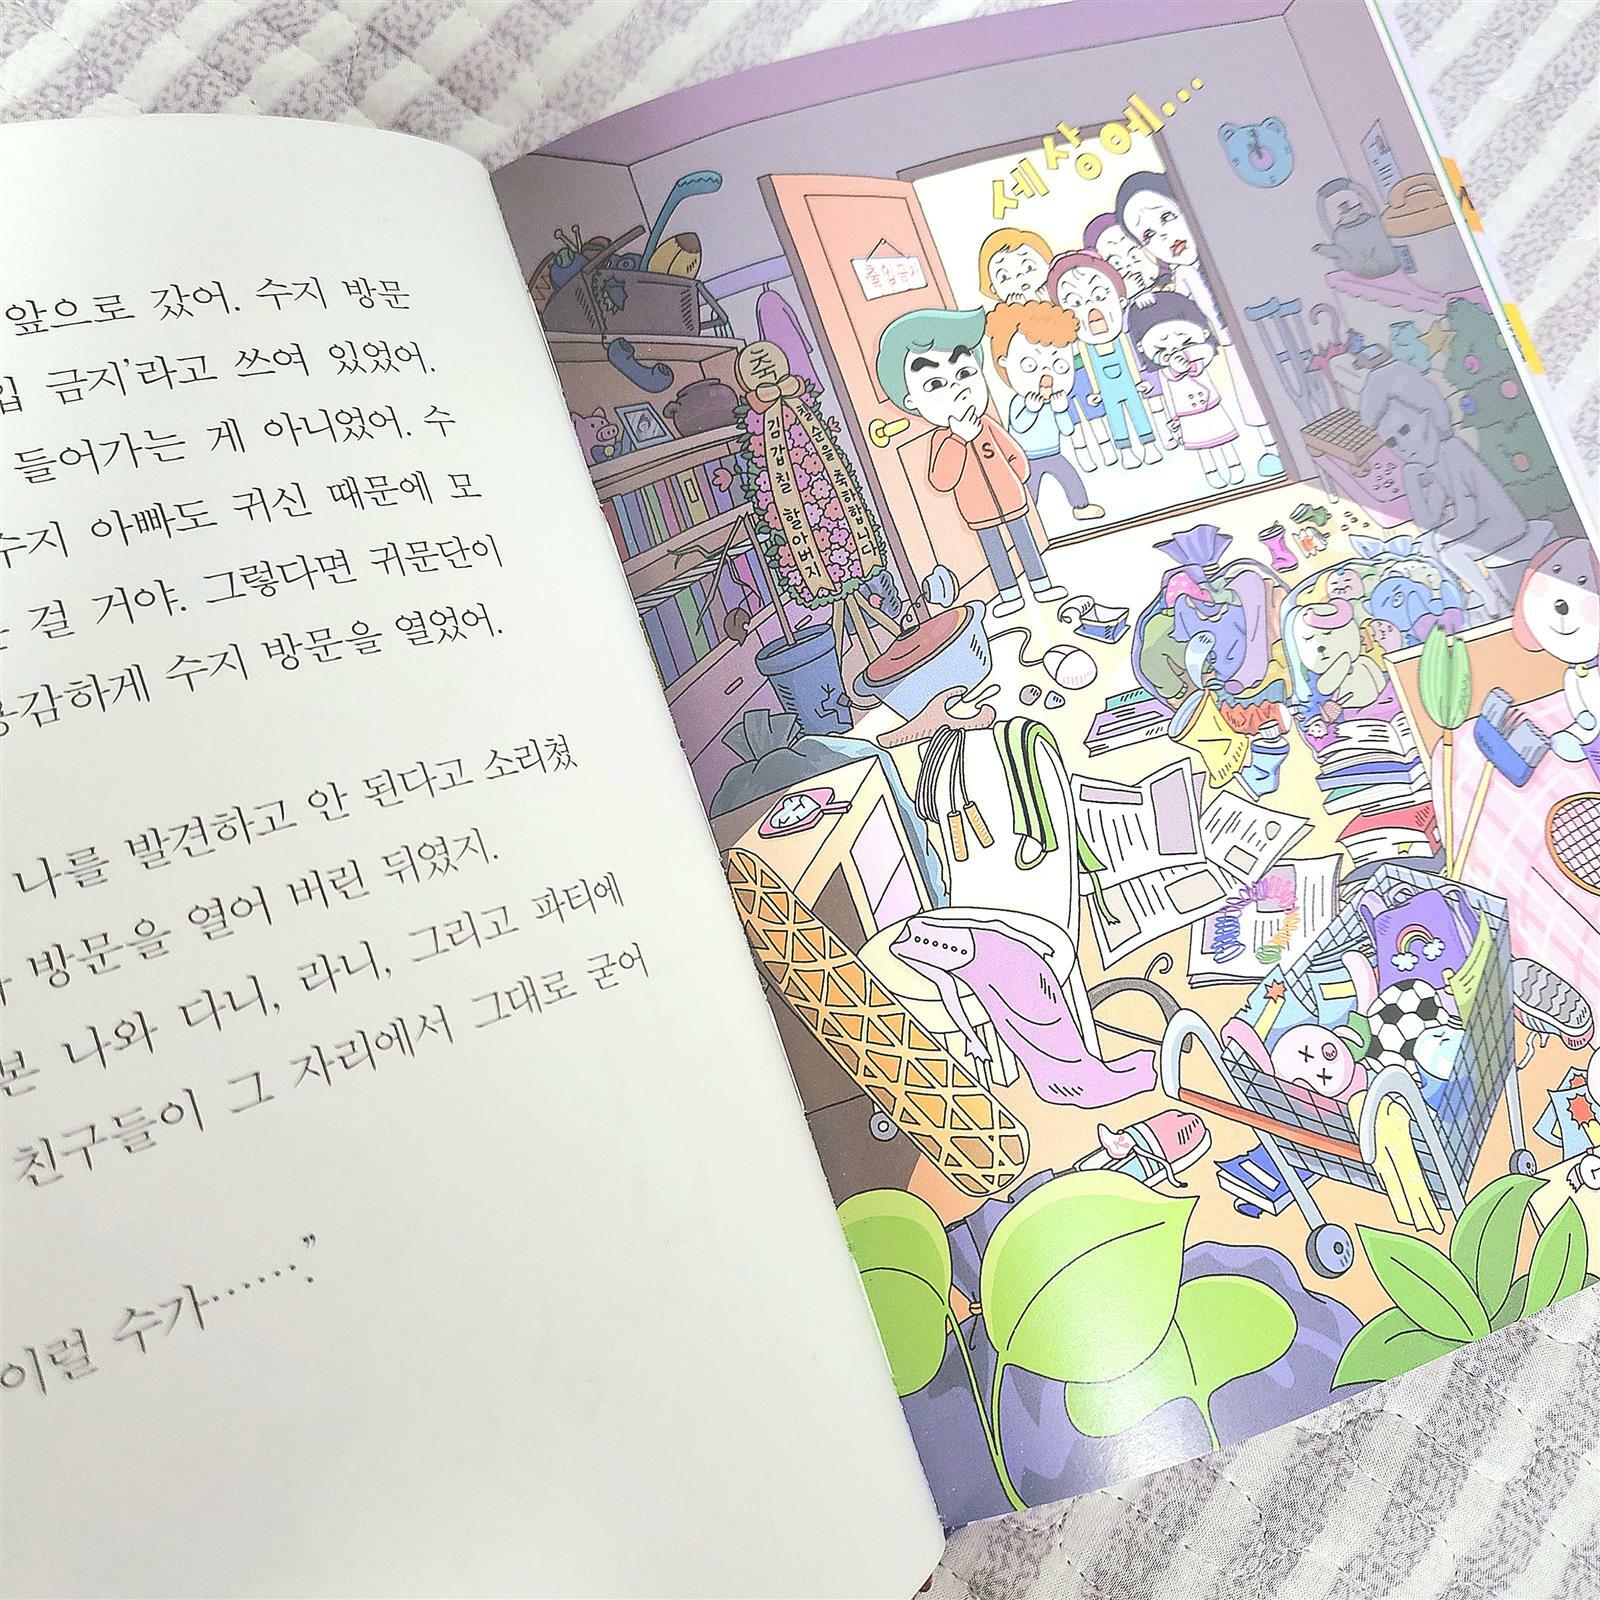 앞으로 갔어. 수지 방문
입 금지'라고 쓰여 있었어.
들어가는 게 아니었어. 수
수지 아빠도 귀신 때문에 모
걸 거야. 그렇다면 귀문단이
용감하게 수지 방문을 열었어.
나를 발견하고 안 된다고 소리쳤
방문을 열어 버린 뒤였지.
본 나와 다니, 라니, 그리고 파티에
친구들이 그 자리에서 그대로 굳어
이럴 수가……."
세상에...
출입금지
축
김갑칠 할아버지
칠순을 축하합니다
S